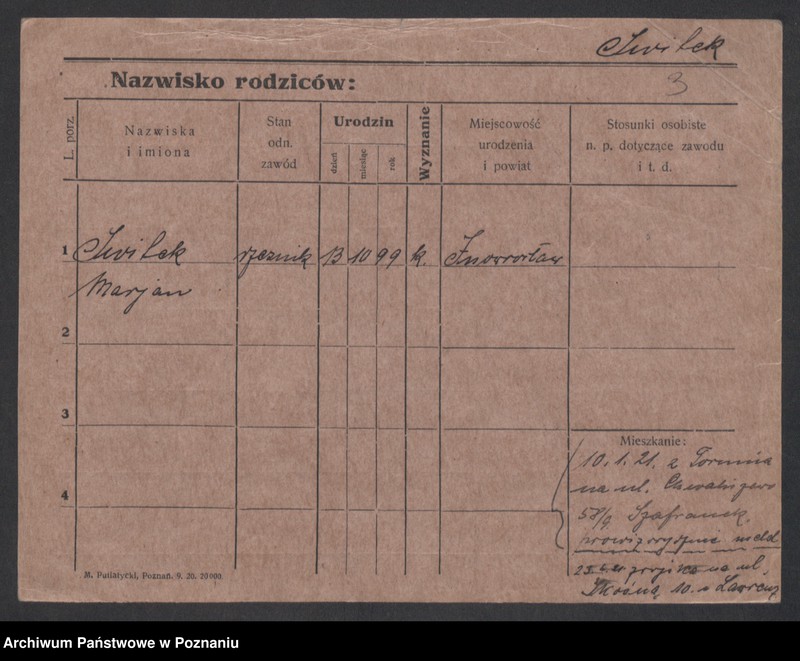 Nazwisko rodziców:
3
L. porz.
Nazwiska
i imiona
Stan
odn.
zawód
Urodzin
dzień
miesiąc
rok
Wyznanie
Miejscowość
urodzenia
i powiat
Stosunki osobiste
n. p. dotyczące zawodu
i t. d.
1 rzeznik 13 10 99 k. Inowrocław
Marjan
2
3
Mieszkanie:
10.1.21. z Torunia
na ul. Chwaliszewo
4
58/9 Szafranek,
prowizorycznie meld
na ul.
10. u
M. Putiatycki, Poznań. 9. 20. 20 000.
Archiwum Państwowe w Poznaniu